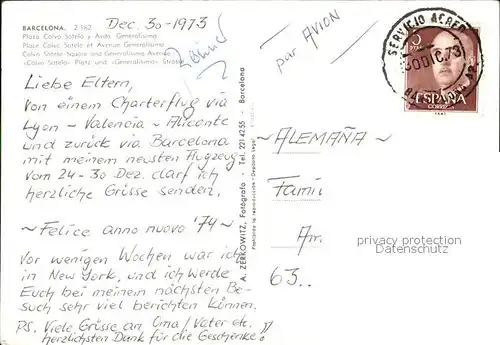 BARCELONA. 2.182
Dec. 30-1973
Plaza Calvo Sotelo y Avda. Generalísimo
Place Calvo Sotelo et Avenue Generalísimo
Calvo Sotelo Square and Generalísimo Avenue
«Calvo Sotelo» Platz und «Generalísimo» Strasse
Liebe Eltern,
Von einem Charterflug via
Lyon - Valencia - Alicante
und zurück via Barcelona
mit meinem neusten Flugzeug
vom 24-30 Dez. darf ich
herzliche Grüsse senden.
~ Felice anno nuovo '74 ~
Vor wenigen Wochen war ich
in New York, und ich werde
Euch bei meinem nächsten Be-
such sehr viel berichten können.
PS. Viele Grüsse an Oma / Vater etc.
herzlichsten Dank für die Geschenke!
A. ZERKOWITZ, Fotógrafo - Tel. 221 42 55 - Barcelona
Prohibida la reproducción - Depósito Legal
par AVION
SERVICIO AEREO
30 DIC. 73
5
PTAS
ESPAÑA
CORREOS
~ ALEMAÑA ~
Famil
Am.
63..
privacy protection
Datenschutz